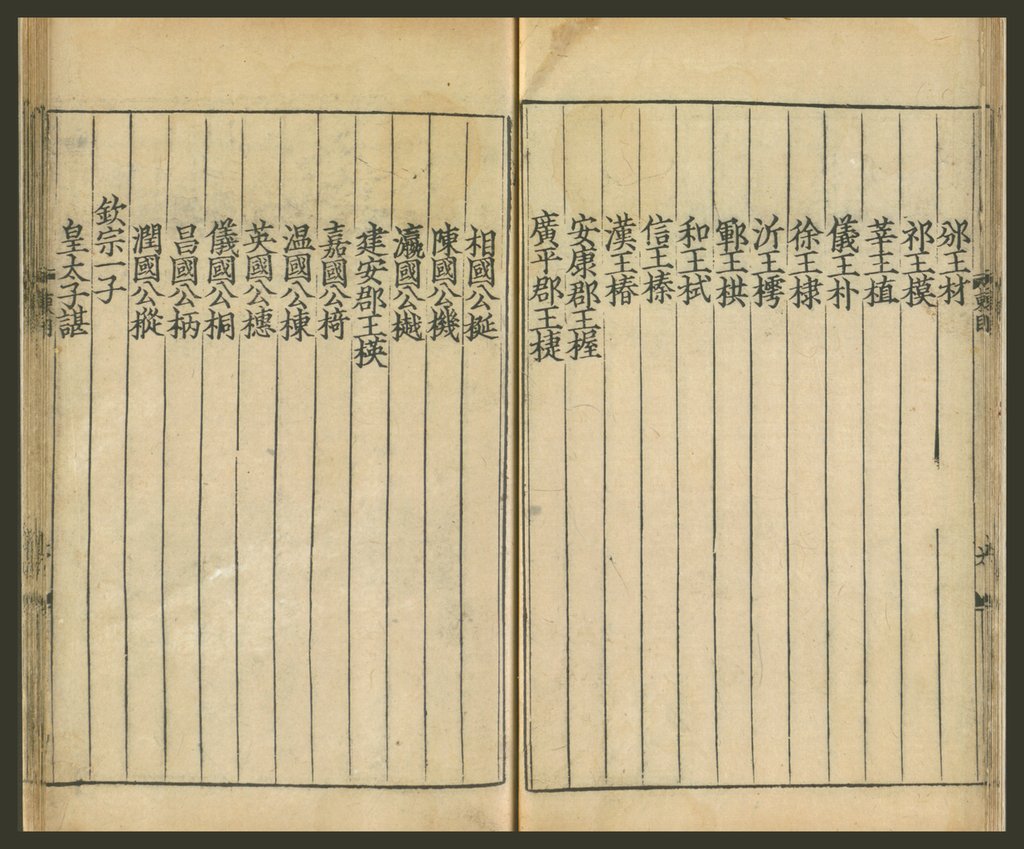 邠王材
祁王模
莘王植
儀王朴
徐王棣
沂王樗
鄆王栱
和王栻
信王榛
漢王椿
安康郡王楃
廣平郡王楗
相國公梴
陳國公機
瀛國公樾
建安郡王楧
嘉國公椅
温國公棟
英國公橞
儀國公桐
昌國公柄
潤國公樅
欽宗一子
皇太子諶